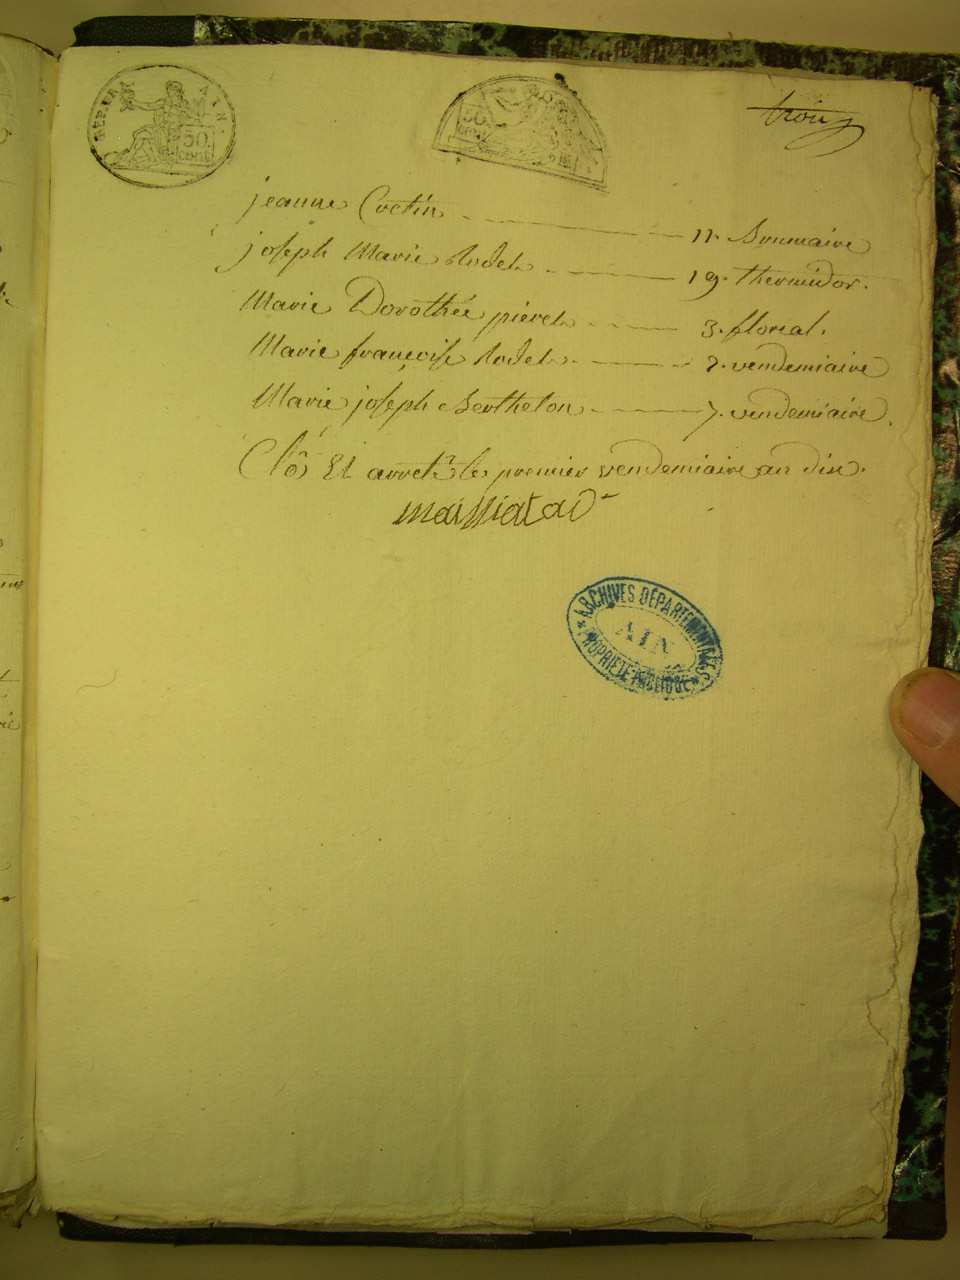 REP. FRA AIN.
50 cent
50 cent
trois
jeanne Coctin 11. brumaire
joseph Marie Rodet 19. thermidor.
Marie Dorothée piéret 3. floréal.
Marie françoise Rodet 2. vendemiaire
Marie joseph Berthelon 7. vendemiaire.
Clôs Et arreté le premier vendemiaire an dix.
ARCHIVES DÉPARTEMENTALES
AIN
PROPRIÉTÉ PUBLIQUE